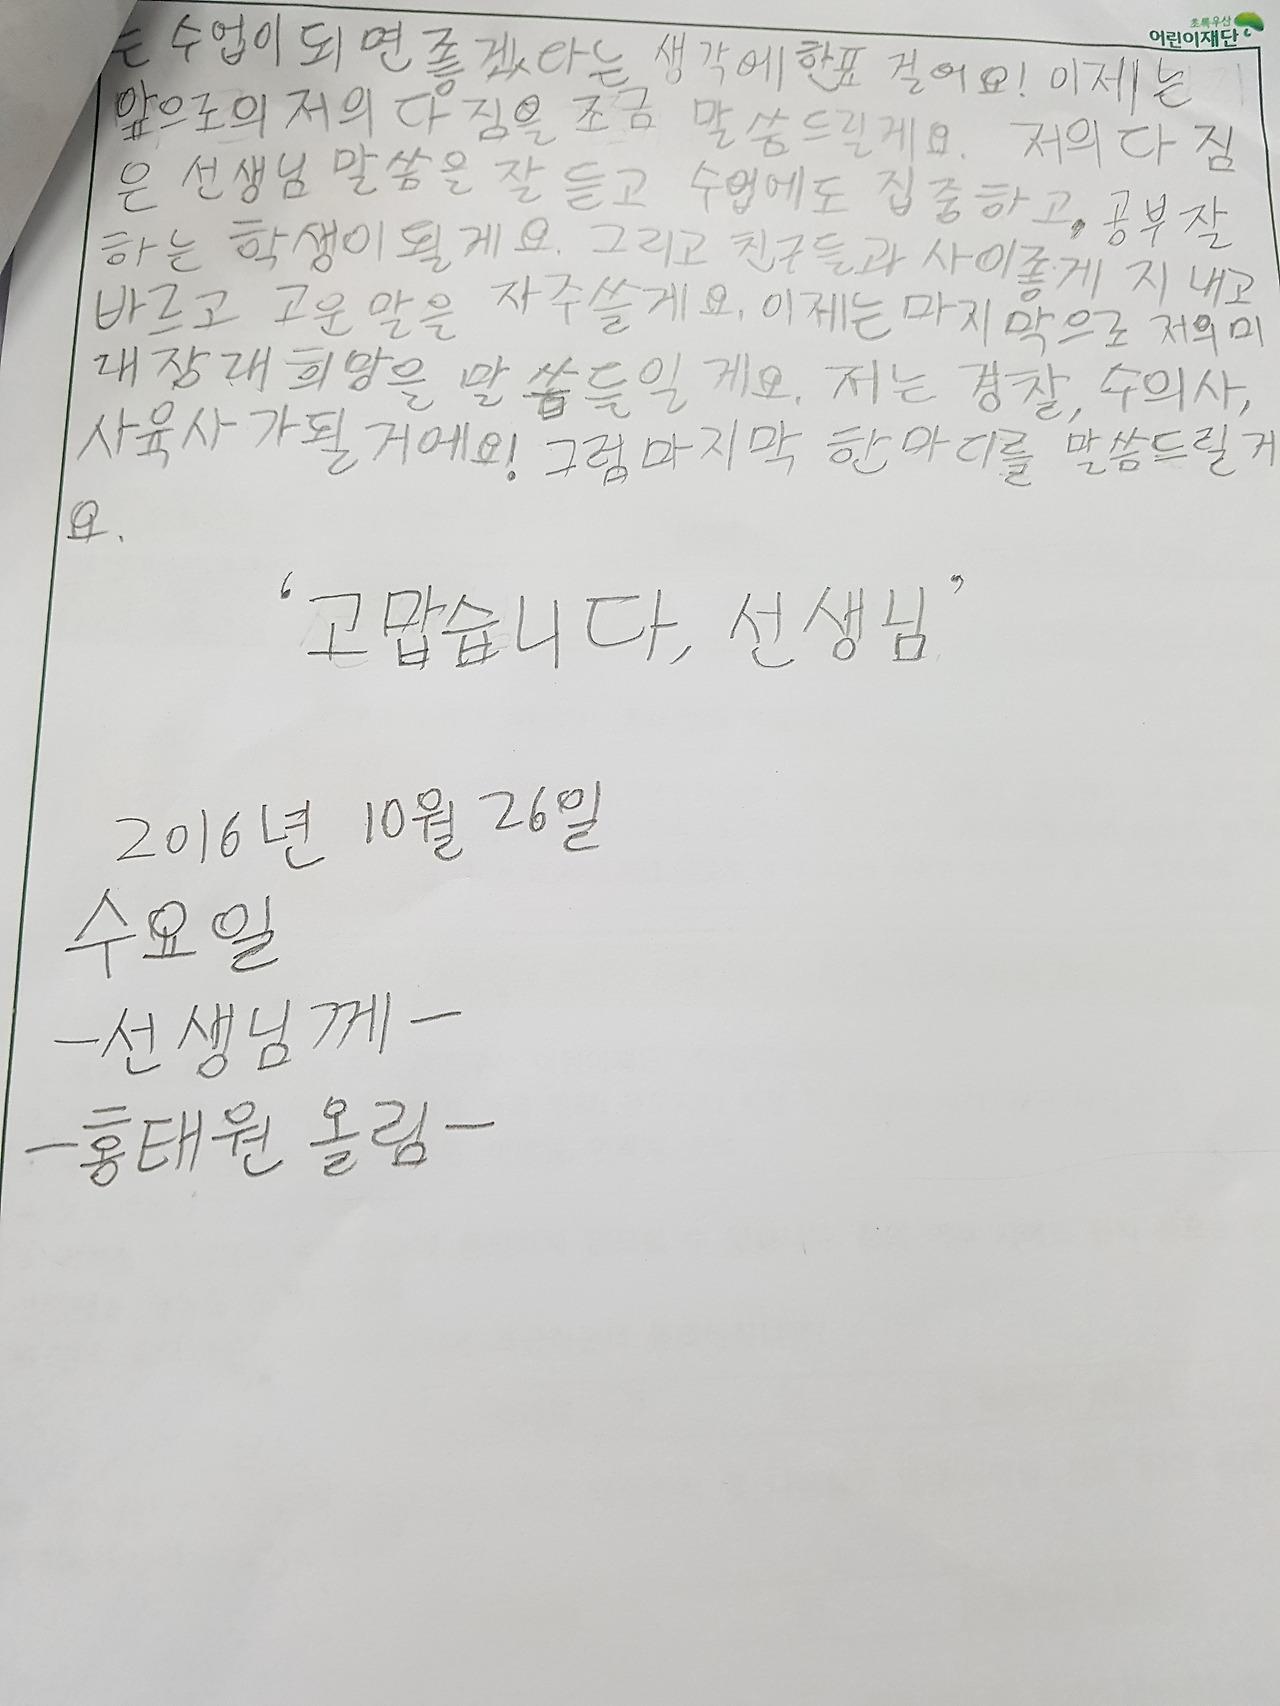 초록우산
어린이재단
는 수업이 되면 좋겠다는 생각에 한표 걸어요! 이제는
앞으로의 저의 다짐을 조금 말씀드릴게요. 저의 다짐
은 선생님 말씀을 잘 듣고 수업에도 집중하고, 공부 잘
하는 학생이 될게요. 그리고 친구들과 사이좋게 지내고
바르고 고운 말을 자주쓸게요. 이제는 마지막으로 저의 미
래 장래 희망을 말씀들일게요. 저는 경찰, 수의사,
사육사가 될거에요! 그럼 마지막 한마디를 말씀드릴게
요.
‘고맙습니다, 선생님’
2016년 10월 26일
수요일
-선생님께-
-홍태원 올림-